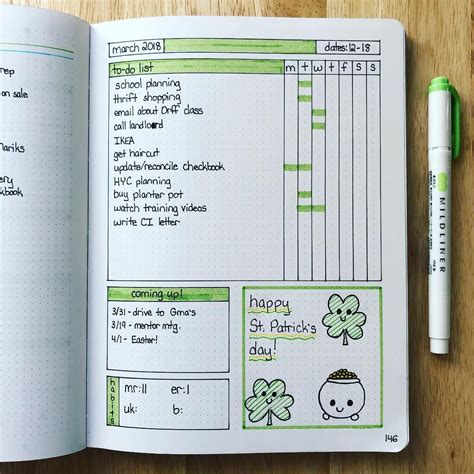 rep
on sale
Mariks
ery
kbook
march 2018
dates: 12-18
to-do list
m t w t f s s
school planning
thrift shopping
email about Orff class
call landlord
IKEA
get haircut
update/reconcile checkbook
HYC planning
buy planter pot
watch training videos
write CI letter
coming up!
3/31 - drive to Gma's
3/19 - mentor mtg.
4/1 - Easter!
happy
St. Patrick's
day!
habits
mr: 11 er: 1
uk: b:
146
MILDLINER